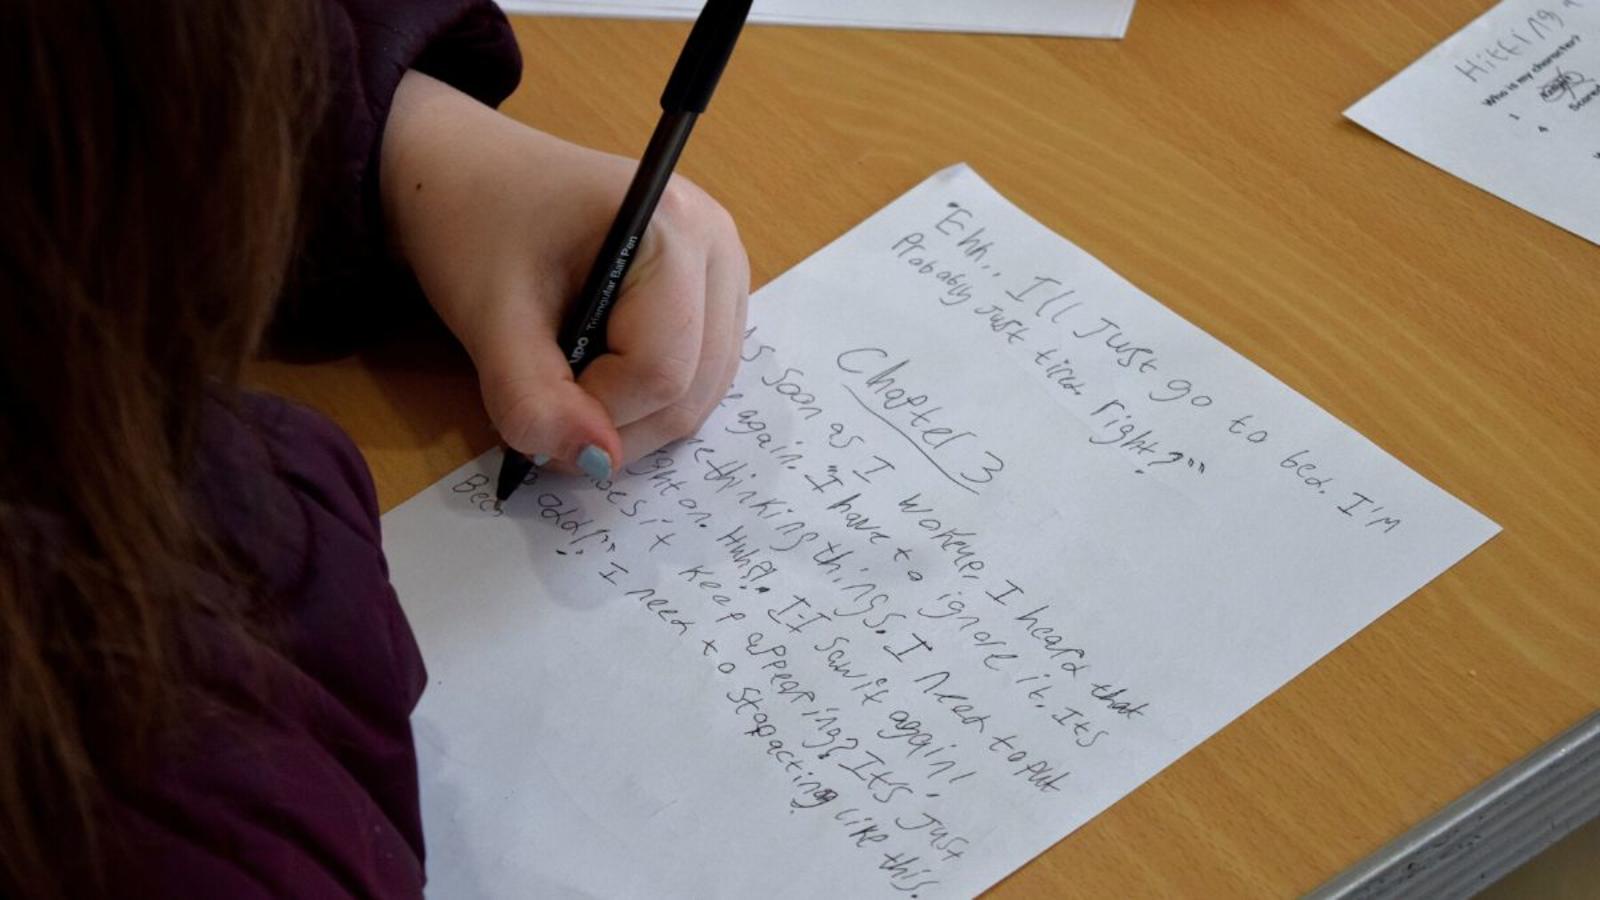 "Ehh.. I'll Just go to bed. I'm
Probably Just tired. right?""
Chapter 3
As soon as I wokeup, I heard that
again. "I have to ignore it. Its
me thinking things. I need to put
light on. Huh?!.. I-I saw it again!
does it keep appearing? Its Just
so odd!" I need to stop acting like this.
Bec
UPO Triangular Ball Pen
Hitting
Who is my character?
1
4
Scared